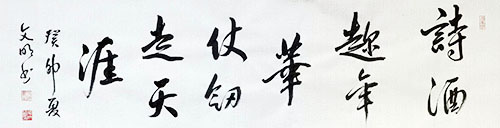 詩酒
趁年
華
仗釼
走天
涯
癸卯夏
文明书